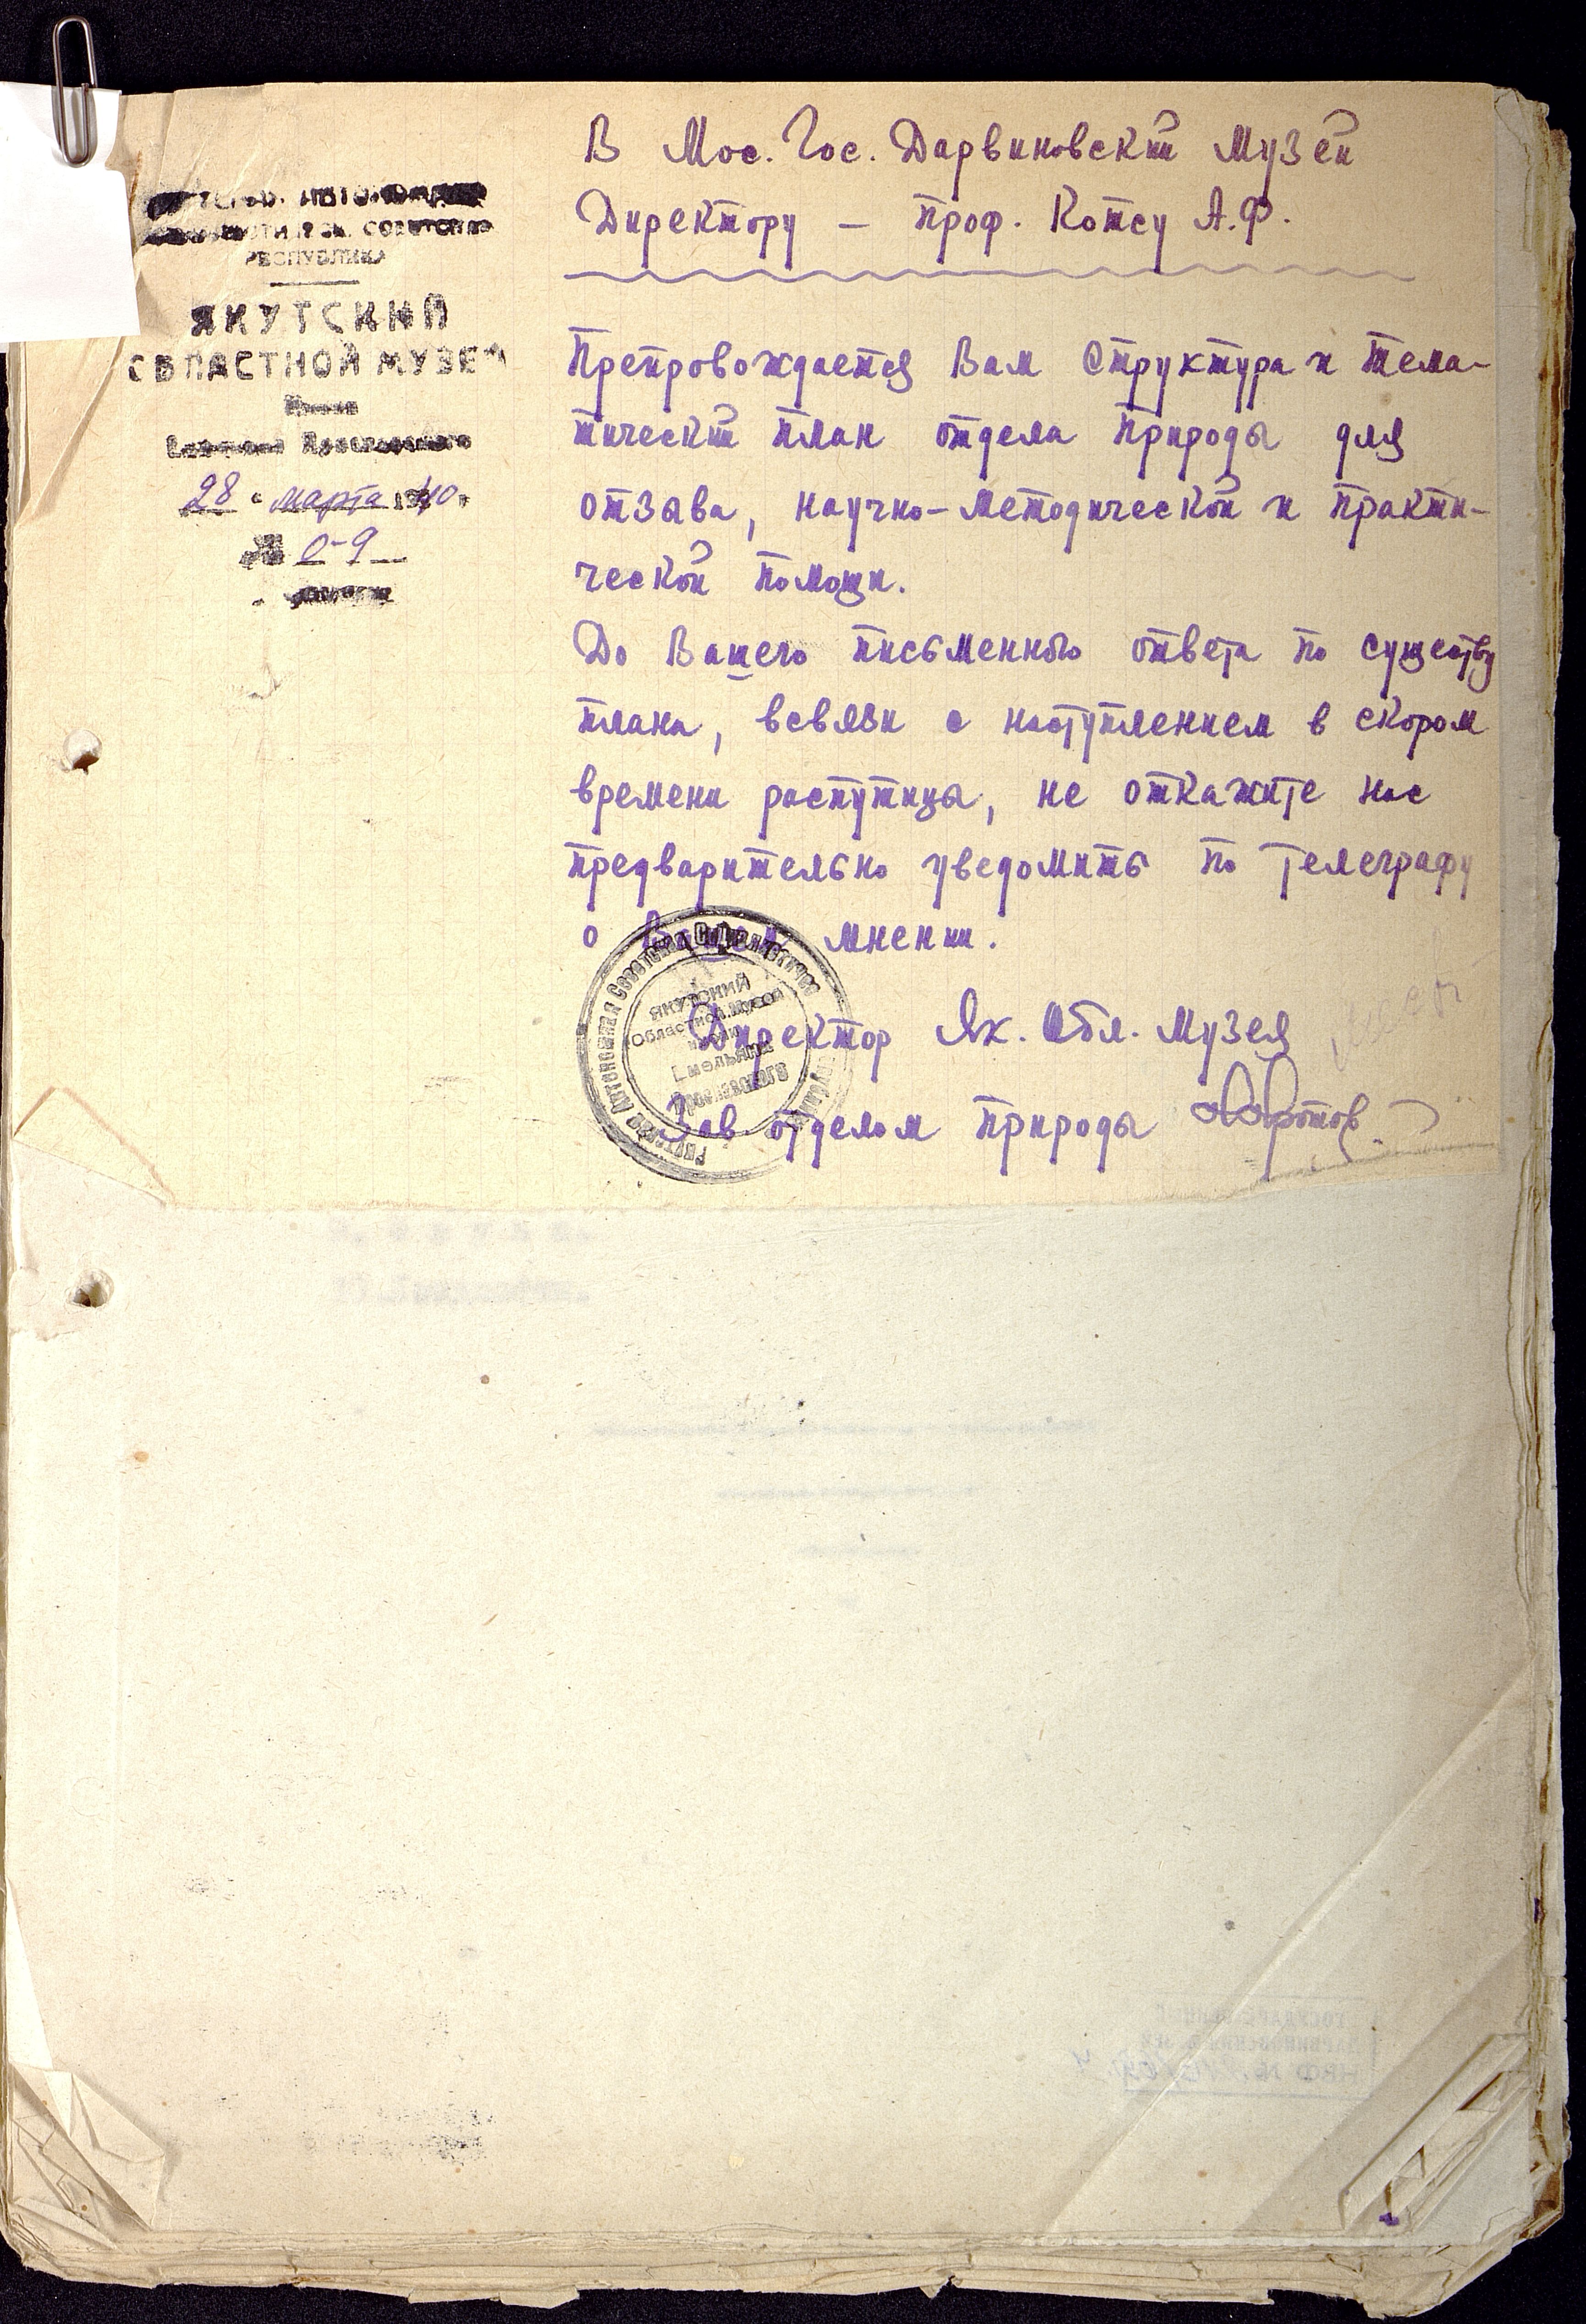 РЕСПУБЛИКА
ЯКУТСКИЙ
ОБЛАСТНОЙ МУЗЕЙ
28 " марта 1940 г.
№ 0-9
В Мос. Гос. Дарвиновский Музей
Директору — проф. Котсу А.Ф.
Препровождается Вам Структура и тема-
тический план отдела природы для
отзыва, научно-методической и практи-
ческой помощи.
До Вашего письменного ответа по существу
плана, всвязи с наступлением в скором
времени распутицы, не откажите нас
предварительно уведомить по телеграфу
о Вашем мнении.
Директор Як. Обл. Музея
Зав отделом природы
Якутский
Областной Музей
имени
Емельяна
Ярославского